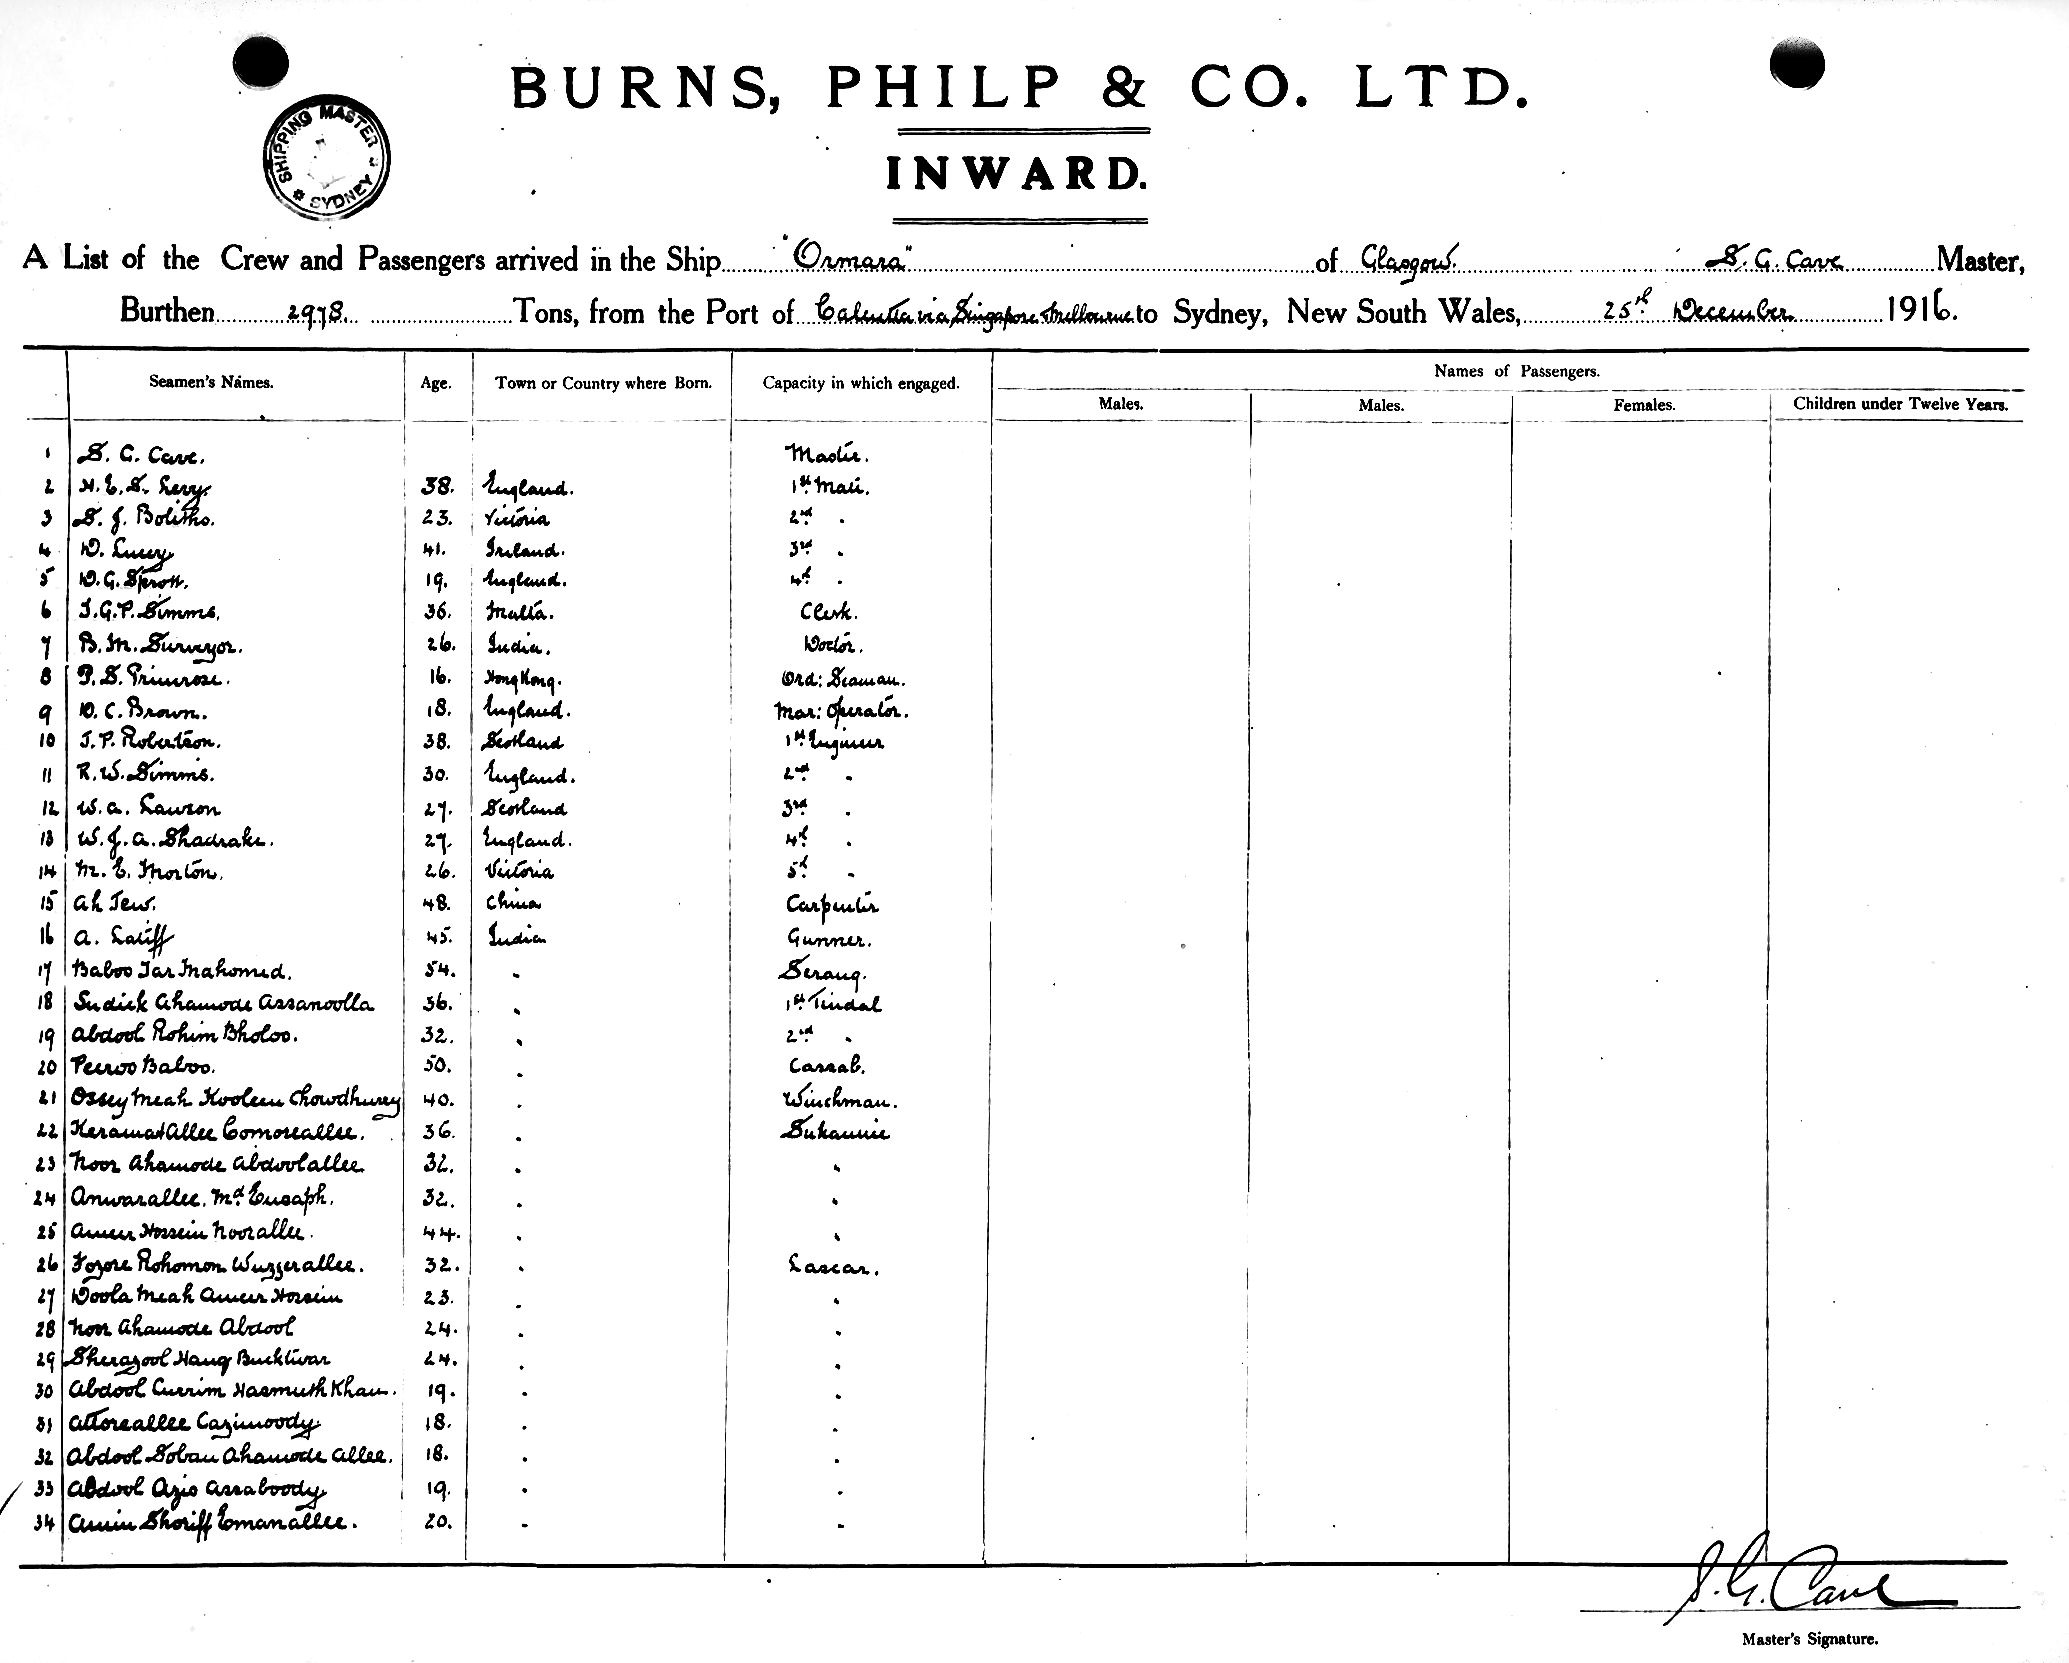 SHIPPING MASTER SYDNEY
BURNS, PHILP & CO. LTD.
INWARD.
A List of the Crew and Passengers arrived in the Ship "Ormara" of Glasgow. S. G. Cave Master,
Burthen 2978. Tons, from the Port of Calcutta via Singapore & Melbourne to Sydney, New South Wales, 25th December 1916.
Seamen's Names. Age. Town or Country where Born. Capacity in which engaged. Names of Passengers.
Males. Males. Females. Children under Twelve Years.
1 S. G. Cave. Master.
2 H. E. S. Levy. 38. England. 1st Mate.
3 S. J. Bolitho. 23. Victoria 2nd "
4 D. Lucey 41. Ireland. 3rd "
5 D. G. Sprott. 19. England. 4th "
6 J. G. P. Simms. 36. Malta. Clerk.
7 B. M. Surveyor. 26. India. Doctor.
8 P. S. Primrose. 16. Hong Kong. Ord: Seaman.
9 D. C. Brown. 18. England. Mar: Operator.
10 J. P. Robertson. 38. Scotland 1st Engineer
11 R. W. Simms. 30. England. 2nd "
12 W. A. Lawson 27. Scotland 3rd "
13 W. J. A. Shadrake. 27. England. 4th "
14 M. E. Morton. 26. Victoria 5th "
15 Ah Tew. 48. China Carpenter
16 A. Latiff 45. India Gunner.
17 Baboo Jar Mahomed. 54. " Serang.
18 Sudick Ahamode Assanoolla 36. " 1st Tindal
19 Abdool Rohim Bholoo. 32. " 2nd "
20 Peeroo Baboo. 50. " Cassab.
21 Ossey Meah Kooleen Chowdhurey 40. " Winchman.
22 Keramat Allee Comoreallee. 36. " Sukannie
23 Noor Ahamode Abdoolallee 32. " "
24 Anwarallee. Md. Eusaph. 32. " "
25 Ameer Hossein Noorallee. 44. " "
26 Fozore Rohomon Wuzzerallee. 32. " Lascar.
27 Doola Meah Ameer Hossein 23. " "
28 Noor Ahamode Abdool 24. " "
29 Sherazool Haug Bucktwar 24. " "
30 Abdool Currim Hasmuth Khan. 19. " "
31 Attoreallee Cazimoody 18. " "
32 Abdool Soban Ahamode Allee. 18. " "
33 Abdool Azis Assaboody 19. " "
34 Amin Shoriff Emanallee. 20. " "
S. G. Cave
Master's Signature.